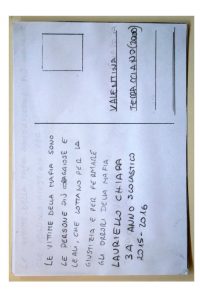 LE VITTIME DELLA MAFIA SONO
LE PERSONE PIÙ CORAGGIOSE E
LEALI, CHE LOTTANO PER LA
GIUSTIZIA E PER FERMARE
GLI ORRORI DELLA MAFIA
LAURIELLO CHIARA
3A ANNO SCOLASTICO
2015-2016
VALENTINA
TERRACCIANO (2000)